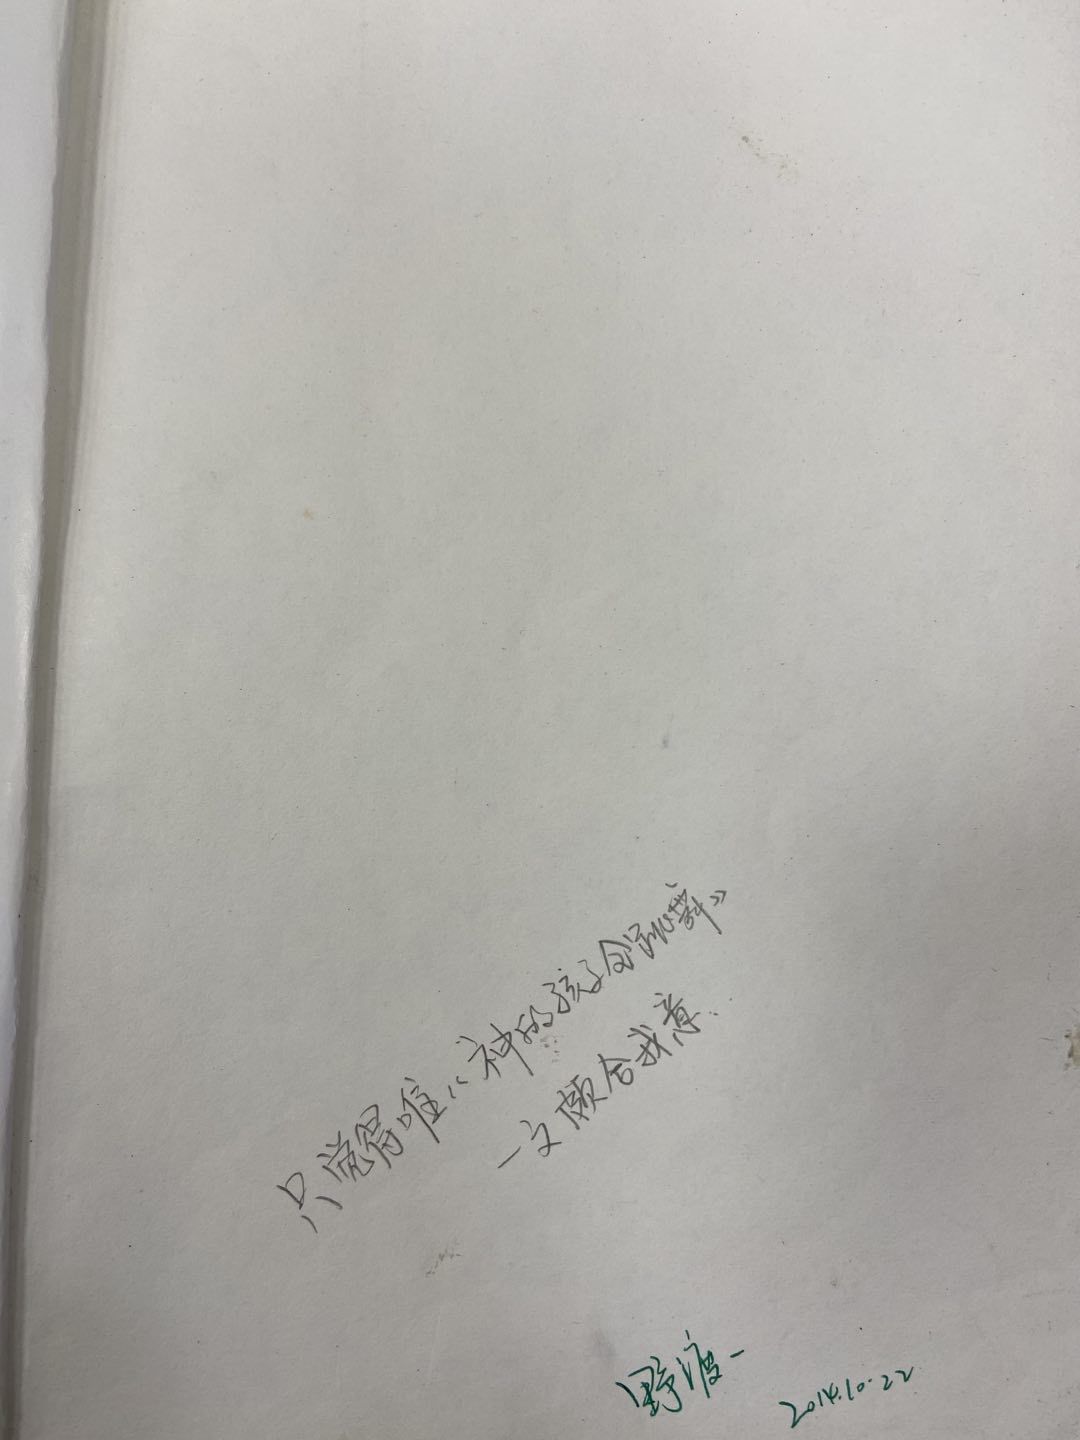 只觉得唯《神的孩子全跳舞》
一文颇合我意.
野渡一
2014.10.22